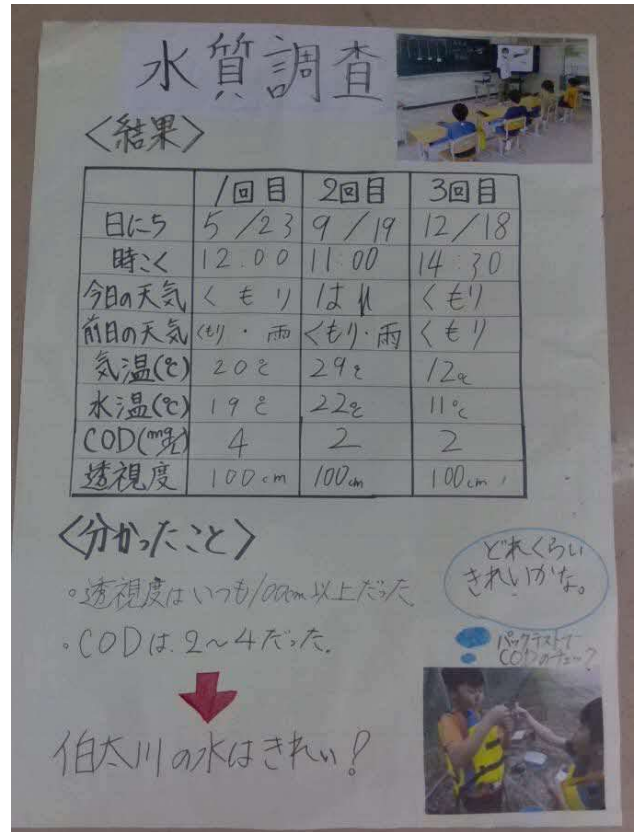 水質調査
〈結果〉
1回目 2回目 3回目
日にち 5/23 9/19 12/18
時こく 12:00 11:00 14:30
今日の天気 くもり はれ くもり
前日の天気 くもり・雨 くもり・雨 くもり
気温(℃) 20℃ 29℃ 12℃
水温(℃) 19℃ 22℃ 11℃
COD(mg/L) 4 2 2
透視度 100cm 100cm 100cm
〈分かったこと〉
。透視度はいつも100cm以上だった
。CODは、2〜4だった。
伯太川の水はきれい!
どれくらい
きれいかな。
パックテストで
CODのチェック